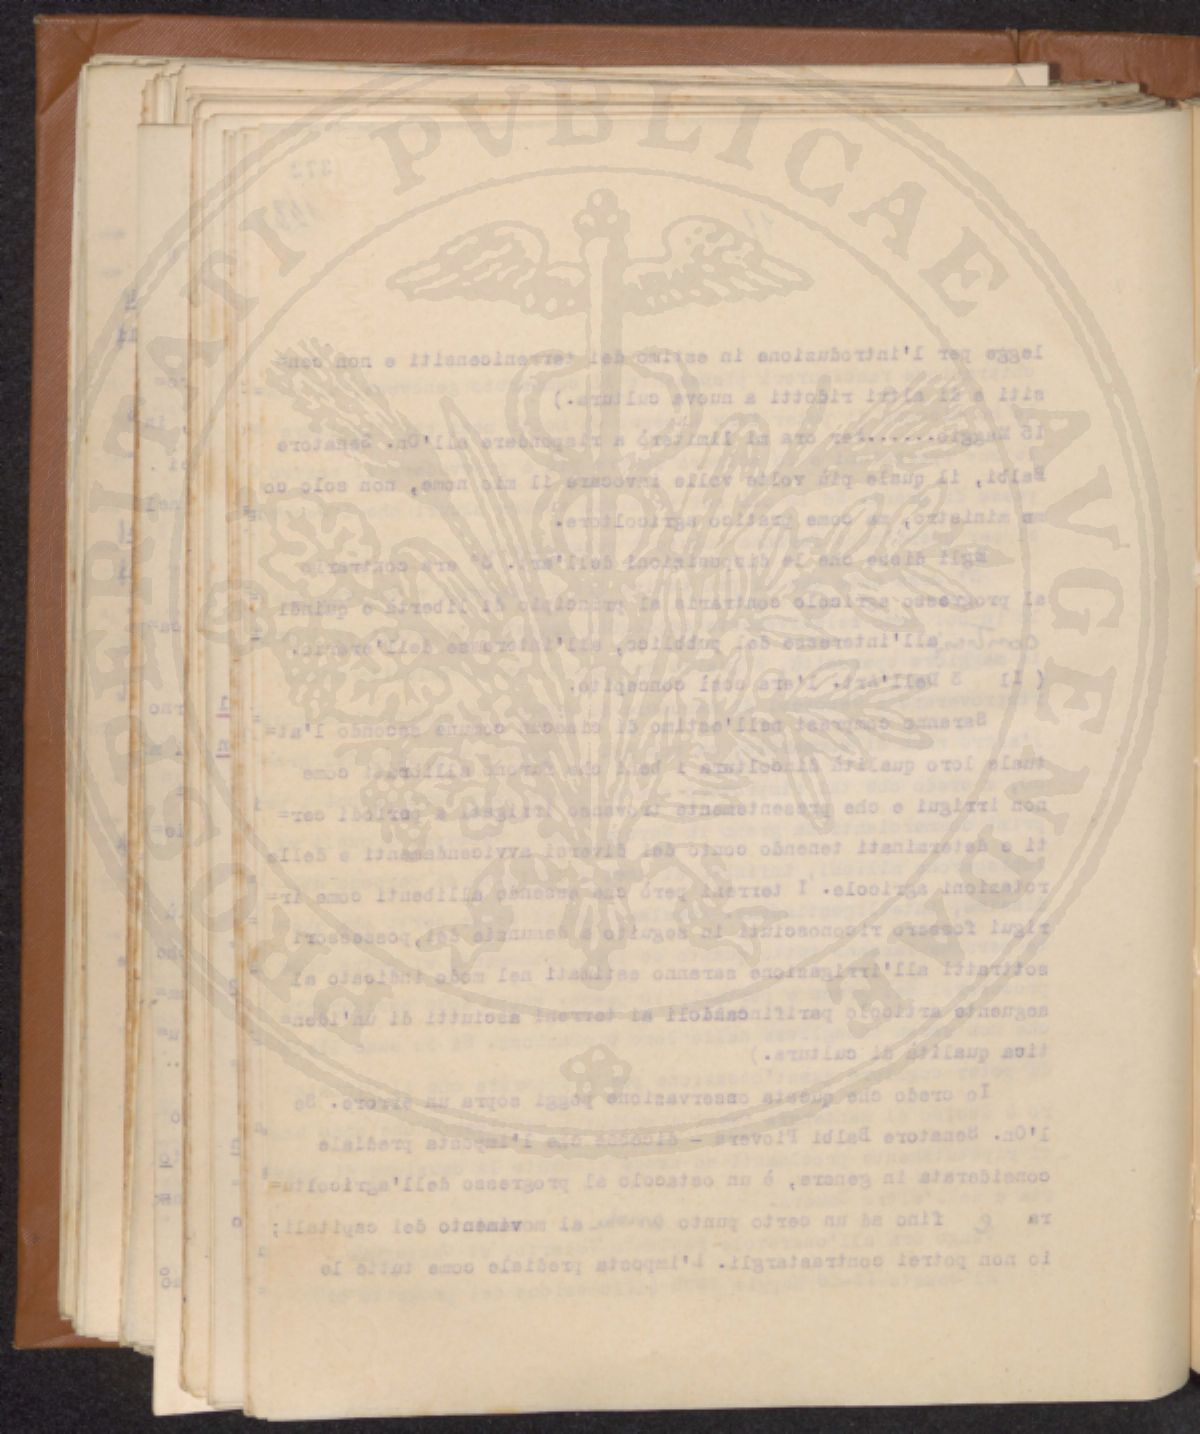 PROSPERITATI PVBLICAE AVGENDAE
legge per l'introduzione in estimo dei terrenicensiti e non cen=
siti e di altri ridotti a nuova cultura.)
15 Maggio.......Per ora mi limiterò a rispondere all'On. Senatore
Balbi, il quale più volte volle invocare il mio nome, non solo co
me ministro, ma come pratico agricoltore.
Egli disse che le disposizioni dell'art. 3° era contrario
al progresso agricolo contraria al principio di libertà e quindi
all'interesse del pubblico, all'interesse dell'erario.
( Il 3 Dell'Art. 1'era così concepito.
Saranno compresi nell'estimo di ciascun comune secondo l'at=
tuale loro qualità dincoltura i beni che furono allibrati come
non irrigui e che presentemente trovansi irrigati a periodi cer=
ti e determinati tenendo conto dei diversi avvicendamenti e delle
rotazioni agricole. I terreni però che essendo allibenti come ir=
rigui fossero riconosciuti in seguito a denuncie dei possessori
sottratti all'irrigazione saranno estimati nel modo indicato al
seguente articolo parifincandoli ai terreni asciutti di un'iden=
tica qualità di cultura.)
Io credo che questa osservazione poggi sopra un errore. Se
l'On. Senatore Balbi Piovera - dicesse che l'imposta prediale
considerata in genere, è un ostacolo al progresso dell'agricoltu=
ra e fino ad un certo punto al movimento dei capitali;
io non potrei contrastargli. L'imposta prediale come tutte le